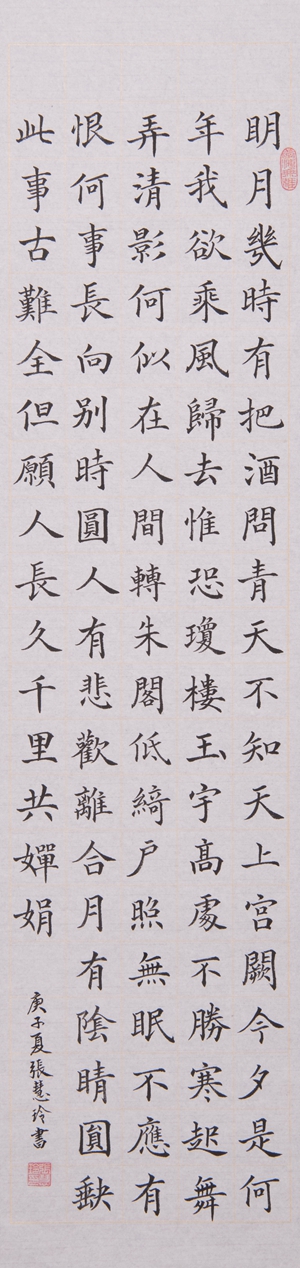 明月幾時有把酒問青天不知天上宮闕今夕是何
年我欲乘風歸去惟恐瓊樓玉宇高處不勝寒起舞
弄清影何似在人間轉朱閣低綺戶照無眠不應有
恨何事長向別時圓人有悲歡離合月有陰晴圓缺
此事古難全但願人長久千里共嬋娟
庚子夏張慧玲書